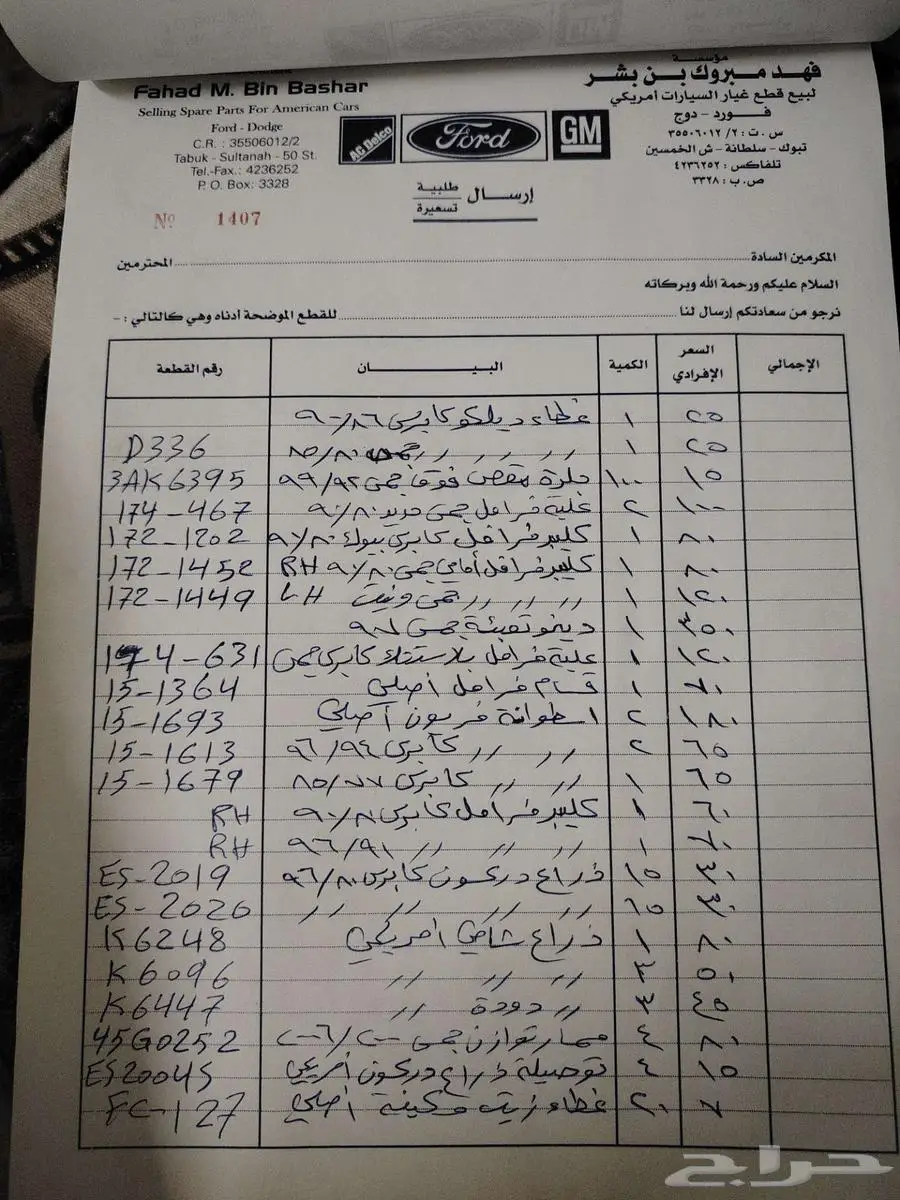 Fahad M. Bin Bashar
Selling Spare Parts For American Cars
Ford - Dodge
C.R. : 35506012/2
Tabuk - Sultanah - 50 St.
Tel.-Fax.: 4236252
P. O. Box: 3328
№ 1407
AC Delco
Ford
GM
مؤسسة
فهد مبروك بن بشر
لبيع قطع غيار السيارات أمريكي
فورد - دوج
س . ت : ٣٥٥٠٦٠١٢/٢
تبوك - سلطانة - ش الخمسين
تلفاكس : ٤٢٣٦٢٥٢
ص . ب : ٣٣٢٨
إرسال طلبية تسعيرة
المكرمين السادة المحترمين
السلام عليكم ورحمة الله وبركاته
نرجو من سعادتكم إرسال لنا للقطع الموضحة أدناه وهي كالتالي : -
الإجمالي السعر الإفرادي الكمية البيـــــان رقم القطعة
٢٥ ١ غطاء ديلكو كابرس ٩٠/٨٦
٢٥ ١ 〃 〃 〃 جمس ٨٥/٨٠ D336
١٥ ١٠٠ جلدة مقص فوق جمس ٩٩/٩٢ 3AK6395
١٠٠ ٢ علبة فرامل جمس حديد ٩٠/٨٠ 174-467
٨٠ ١ كليبر فرامل كابرس بيوك ٩٠/٨٠ 172-1202
٨٠ ١ كليبر فرامل أمامي جمس ٩٠/٨٠ RH 172-1452
١٢٠ ١ 〃 〃 〃 جمس ونيت LH 172-1449
٣٥٠ ١ دينمو تعبئة جمس ٩٧
١٢٠ ١ علبة فرامل بلاستك كابرس جمس 174-631
٧٠ ١ قسام فرامل أصلي 15-1364
١٨٠ ٢ اسطوانة فريون أصلي 15-1693
٦٥ ٢ 〃 〃 كابرس ٩٦/٩٤ 15-1613
٦٥ ١ 〃 〃 كابرس ٨٥/٧٧ 15-1679
٦٠ ١ كليبر فرامل كابرس ٩٠/٨٠ RH
٧٠ ١ 〃 〃 〃 ٩٦/٩١ RH
٣٠ ١٥ ذراع دركسون كابرس ٩٦/٨٠ ES-2019
٣٠ ٦٥ 〃 〃 〃 〃 ES-2020
٨٠ ١ ذراع شاصي أمريكي K6248
٥٠ ٣ 〃 〃 〃 K6096
٤٥ ٣ 〃 دودة 〃 K6447
٨٠ ٤ مسمار توازن جمس 45G0252
١٥ ٤ توصيلة ذراع دركسون أمريكي ES2004S
٧ ٢٠ غطاء زيت مكينة أصلي FC-127
حراج